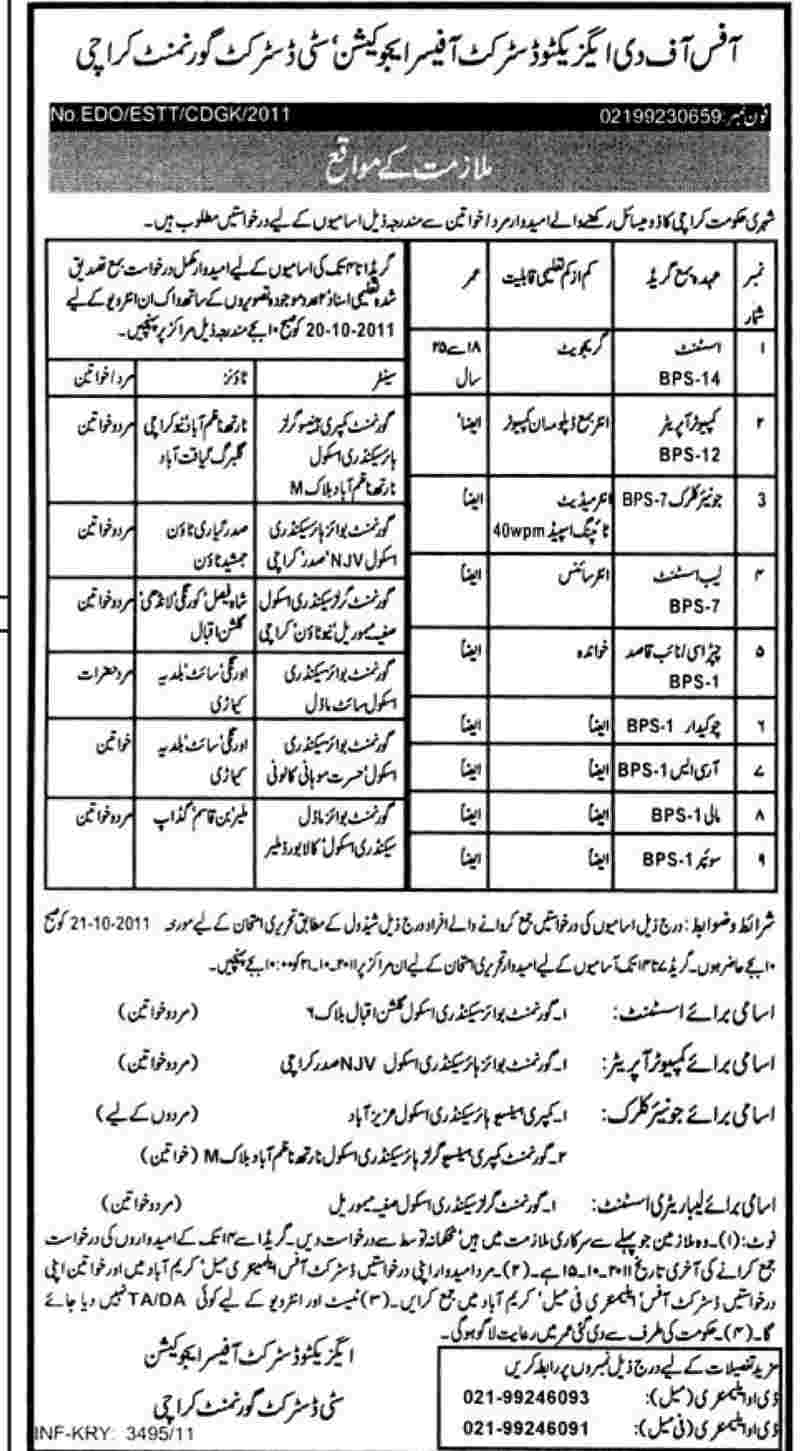 آفس آف دی ایگزیکٹو ڈسٹرکٹ آفیسر ایجوکیشن، سٹی ڈسٹرکٹ گورنمنٹ کراچی
No.EDO/ESTT/CDGK/2011
فون نمبر: 02199230659
ملازمت کے مواقع
شہری حکومت کراچی کا ڈومیسائل رکھنے والے امیدوار مرد/خواتین سے مندرجہ ذیل اسامیوں کے لیے درخواستیں مطلوب ہیں۔
نمبر شمار عہدہ بمع گریڈ کم از کم تعلیمی قابلیت عمر
۱ اسسٹنٹ BPS-14 گریجویٹ ۱۸ سے ۲۵ سال
۲ کمپیوٹر آپریٹر BPS-12 انٹر بمع ڈپلومہ ان کمپیوٹر ایضاً
3 جونیئر کلرک BPS-7 انٹرمیڈیٹ ٹائپنگ اسپیڈ 40wpm ایضاً
۴ لیب اسسٹنٹ BPS-7 انٹر سائنس ایضاً
۵ چپڑاسی/نائب قاصد BPS-1 خواندہ ایضاً
۶ چوکیدار BPS-1 ایضاً ایضاً
۷ آر سی ایس BPS-1 ایضاً ایضاً
۸ مالی BPS-1 ایضاً ایضاً
۹ سوئپر BPS-1 ایضاً ایضاً
گریڈ ۱ تا ۴ تک کی اسامیوں کے لیے امیدوار مکمل درخواست بمع تصدیق
شدہ تعلیمی اسناد ۲ عدد موجودہ تصویروں کے ساتھ واک ان انٹرویو کے لیے
20-10-2011 کو صبح ۱۰ بجے مندرجہ ذیل مراکز پر پہنچیں۔
سینٹر ٹاؤنز مرد/خواتین
گورنمنٹ کمپری ہینسو گرلز ہائر سیکنڈری اسکول نارتھ ناظم آباد بلاک M نارتھ ناظم آباد، نیو کراچی، گلبرگ، لیاقت آباد مرد و خواتین
گورنمنٹ بوائز ہائر سیکنڈری اسکول NJV، صدر، کراچی صدر، لیاری ٹاؤن جمشید ٹاؤن مرد و خواتین
گورنمنٹ گرلز سیکنڈری اسکول صفیہ میموریل، نیو ٹاؤن، کراچی شاہ فیصل، کورنگی، لانڈھی، گلشن اقبال مرد و خواتین
گورنمنٹ بوائز سیکنڈری اسکول سائٹ ماڈل اورنگی، سائٹ، بلدیہ کیماڑی مرد حضرات
گورنمنٹ بوائز سیکنڈری اسکول، حسرت موہانی کالونی اورنگی، سائٹ، بلدیہ کیماڑی خواتین
گورنمنٹ بوائز ماڈل سیکنڈری اسکول، کالا بورڈ ملیر ملیر، بن قاسم، گڈاپ مرد و خواتین
شرائط و ضوابط: درج ذیل اسامیوں کی درخواستیں جمع کروانے والے افراد درج ذیل شیڈول کے مطابق تحریری امتحان کے لیے مورخہ 21-10-2011 کو صبح
۱۰ بجے حاضر ہوں۔ گریڈ ۷ تا ۱۴ تک آسامیوں کے لیے امیدوار تحریری امتحان کے لیے ان مراکز پر ۲۰۱۱۔۱۰۔۲۱ کو ۱۰:۰۰ بجے پہنچیں۔
اسامی برائے اسسٹنٹ: ۱۔گورنمنٹ بوائز سیکنڈری اسکول گلشن اقبال بلاک ۶ (مرد و خواتین)
اسامی برائے کمپیوٹر آپریٹر: ۱۔گورنمنٹ بوائز ہائر سیکنڈری اسکول NJV صدر کراچی (مرد و خواتین)
اسامی برائے جونیئر کلرک: ۱۔کمپری ہینسیو ہائر سیکنڈری اسکول عزیز آباد (مردوں کے لیے)
۲۔گورنمنٹ کمپری ہینسیو گرلز ہائر سیکنڈری اسکول نارتھ ناظم آباد بلاک M (خواتین)
اسامی برائے لیباریٹری اسسٹنٹ: ۱۔گورنمنٹ گرلز سیکنڈری اسکول صفیہ میموریل (مرد و خواتین)
نوٹ: (۱)۔وہ ملازمین جو پہلے سے سرکاری ملازمت میں ہیں، محکمانہ توسط سے درخواست دیں۔ گریڈ ۱ سے ۱۴ تک کے امیدواروں کی درخواست
جمع کرانے کی آخری تاریخ ۲۰۱۱۔۱۰۔۱۵ ہے۔ (۲)۔مرد امیدوار اپنی درخواستیں ڈسٹرکٹ آفس، ایلیمنٹری میل، کریم آباد میں اور خواتین اپنی
درخواستیں ڈسٹرکٹ آفس، ایلیمنٹری فی میل، کریم آباد میں جمع کرائیں۔ (۳) ٹیسٹ اور انٹرویو کے لیے کوئی TA/DA نہیں دیا جائے
گا۔ (۴)۔حکومت کی طرف سے دی گئی عمر میں رعایت لاگو ہوگی۔
ایگزیکٹو ڈسٹرکٹ آفیسر ایجوکیشن
سٹی ڈسٹرکٹ گورنمنٹ کراچی
مزید تفصیلات کے لیے درج ذیل نمبروں پر رابطہ کریں
ڈی او ایلیمنٹری (میل): 021-99246093
ڈی او ایلیمنٹری (فی میل): 021-99246091
INF-KRY: 3495/11